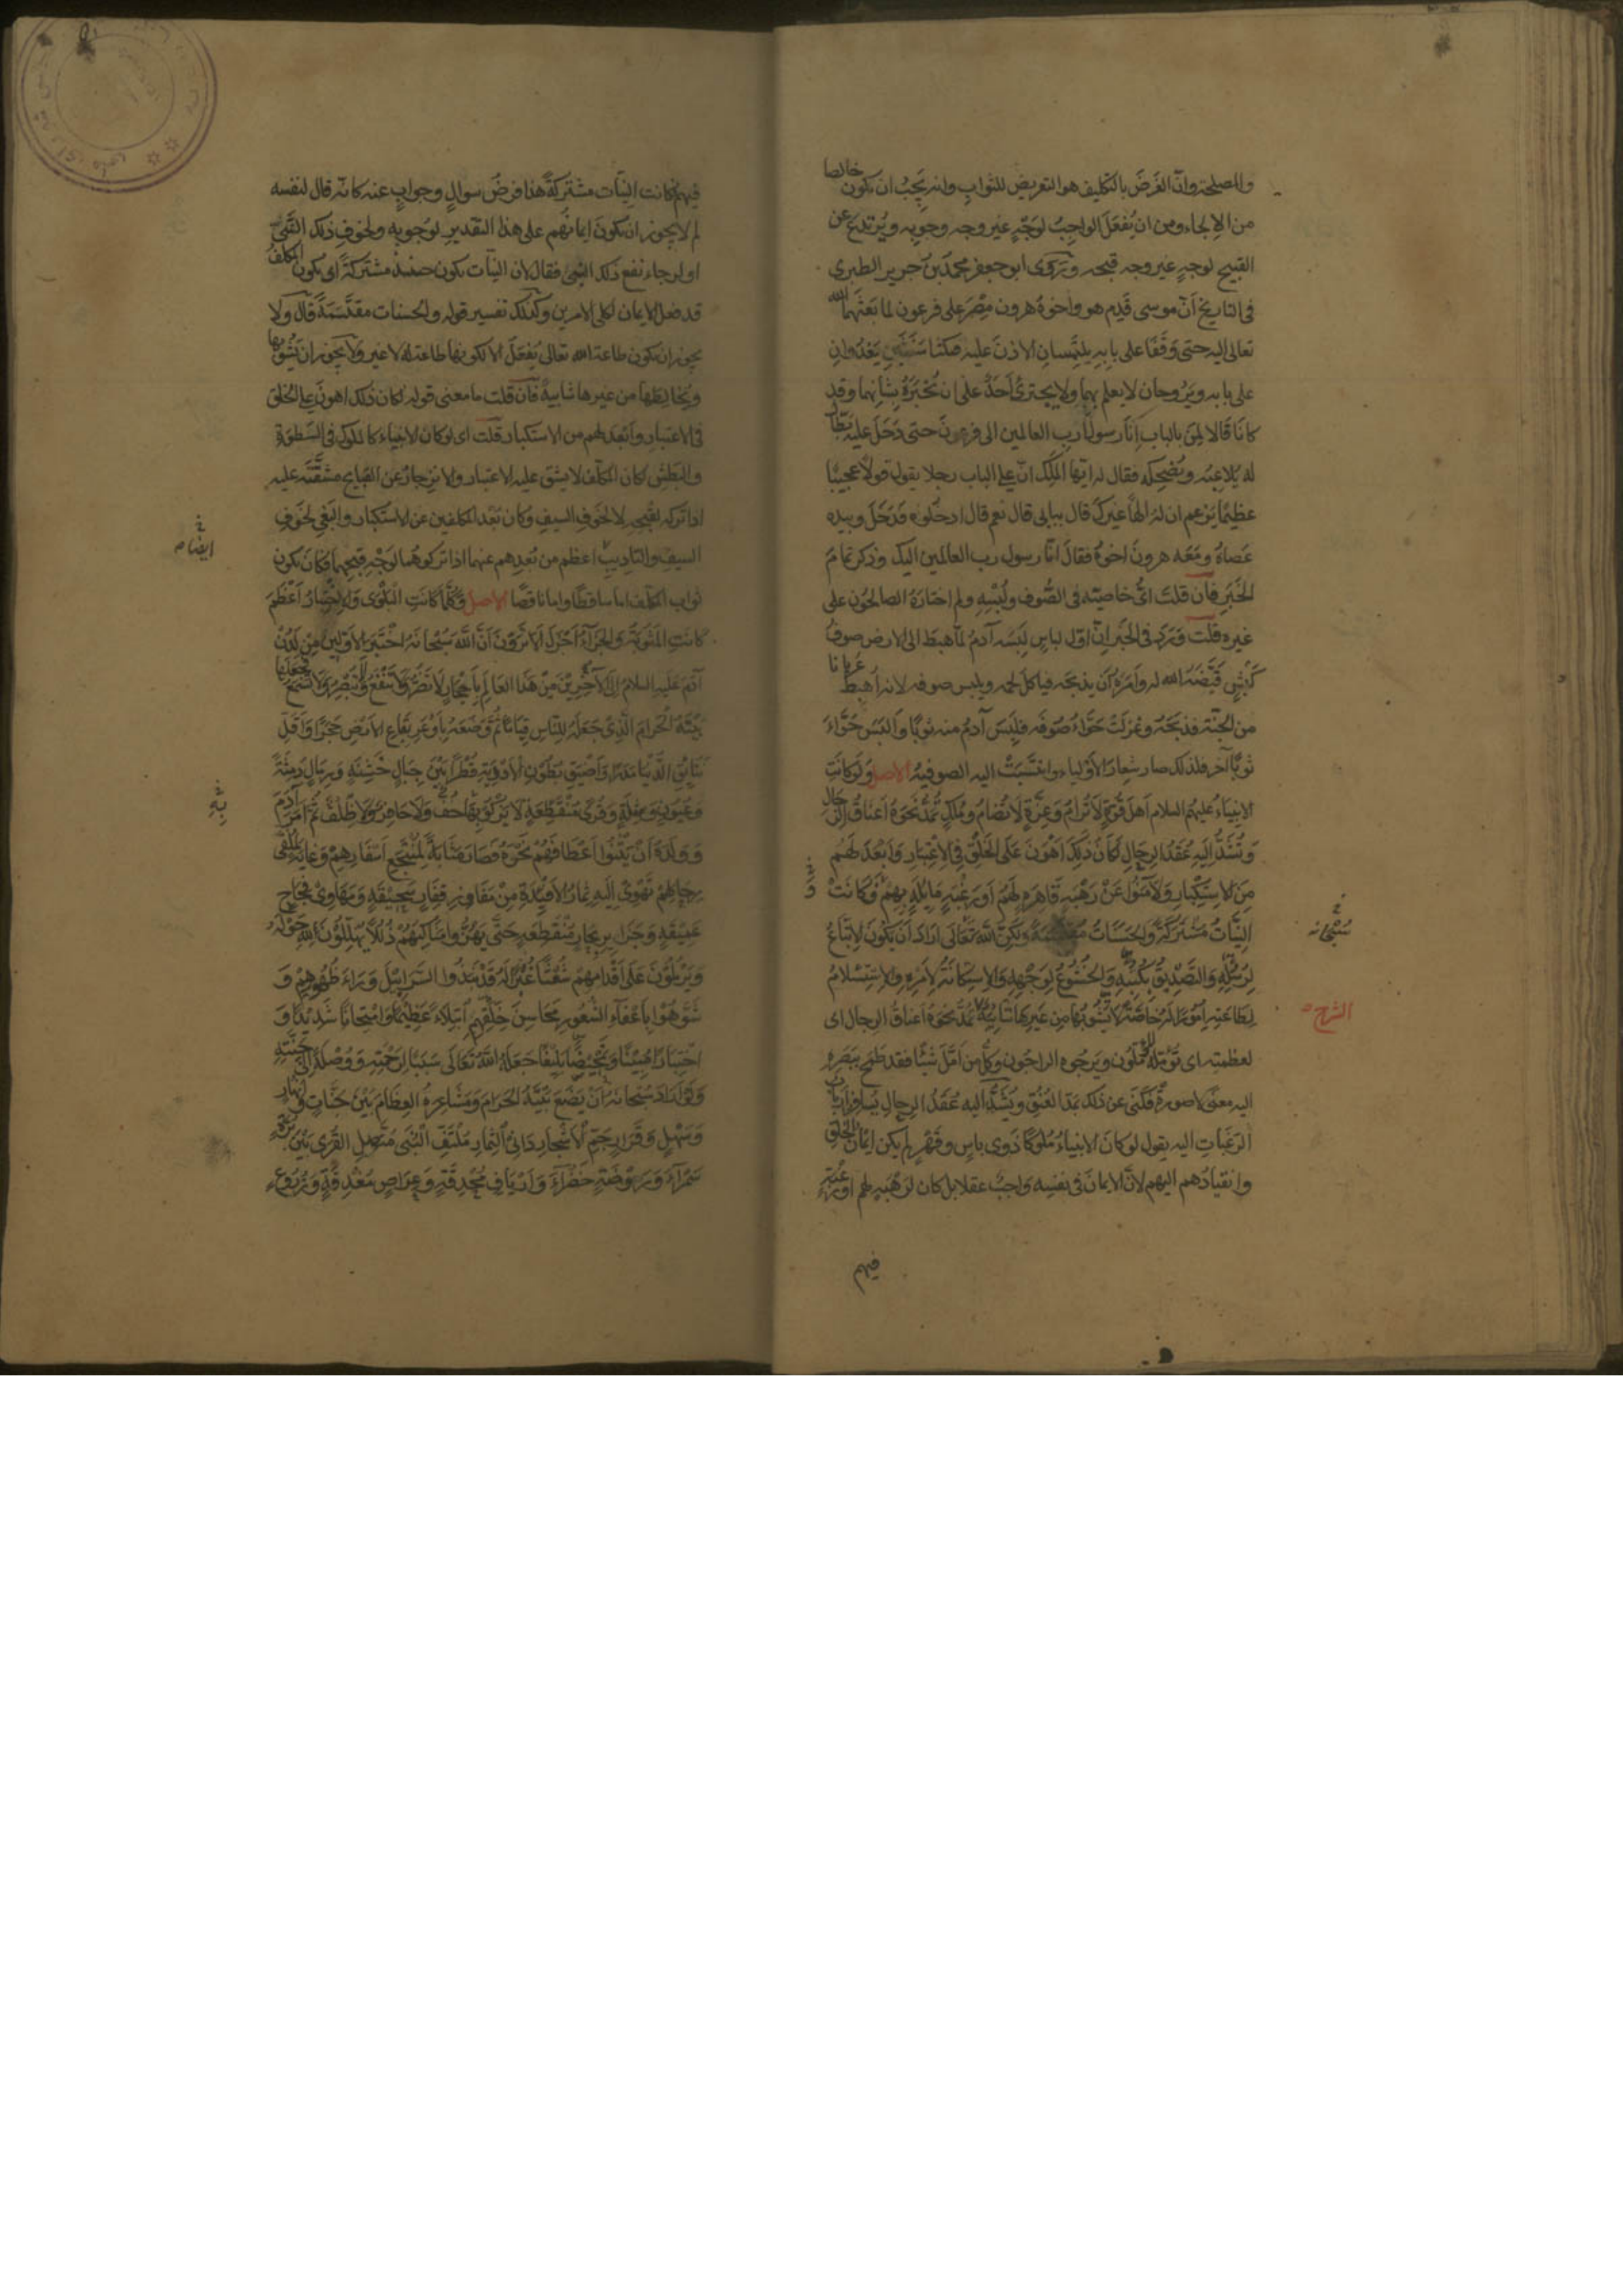 والمصلحة وانّ الغَرَضَ بالتكليف هو التعريض للثواب وانه يَجِبُ ان يكون خالصا
من الإلجاء ومن ان يُفعَلَ الواجبُ لوَجْهٍ غير وجه وجوبه ويُرتدع عن
القبيح لوجهٍ غير وجه قبحه ورَوَى ابو جعفر محمد بن جرير الطبرى
فى التاريخ أنّ موسى قَدِم هو واخوهُ هرون مِصْرَ على فرعون لما بَعَثَهما الله
تعالى اليه حتى وَقَفا على بابِه يلتَمِسانِ الاذنَ عليه فمكثا سَنَتَيْنِ يَغدُوانِ
على بابه ويَرُوحان لا يعلم بهما ولا يجترئُ أحَدٌ على ان يُخْبِرَهُ بِشانِهما وقد
كانا قالا لِمَنْ بالباب إنّا رسولا رَبِ العالمين الى فرعونَ حتى دَخَلَ عليه بَطّالٌ
له يُلاعِبُه ويُضحِكُه فقال له ايّها المَلِك انّ على الباب رجلا يقول قولا عجيبًا
عظيمًا يَزعم ان له الٰهًا غيرَكَ قال ببابى قال نعم قال ادخلوه فدَخَلَ وبيده
عَصاهُ ومَعَه هرونُ اخوهُ فقالَ انا رسول رب العالمين اليك وذكر تمامَ
الخَبَر فان قلتَ اىُّ خاصيّةٍ فى الصُوف ولُبْسِهِ ولم اختارَهُ الصالحُون على
غيره قلتَ وَرَدَ فى الخَبَر انّ اوّل لباسٍ لبسه آدمُ لمّا هبط الى الارض صوفُ
كَبْشٍ قَيَّضَهُ الله له وأمَرَهُ أن يذبحَه فيأكلَ لحمه ويلبس صوفه لانه أهبِطَ عريانا
من الجنّة فذبَحَهُ وغزلَتْ حَوّاءُ صُوفَه فلَبِسَ آدمُ منه ثوبًا وألبَسَ حَوّاءَ
ثوبًا آخر فلذلك صار شِعارَ الاولياء وانتسَبَتْ اليه الصوفيةُ الاصل وَلَوْ كانَتِ
الانبياءُ عليهم السلام أهلَ قُوّةٍ لا تُرامُ وعِزّةٍ لا تُضامُ ومُلكٍ تُمَدُّ نَحْوَهُ أعناقُ الرّجال
وَتُشَدُّ إلَيْهِ عُقَدُ الرِحالِ لَكانَ ذلِكَ أهْوَنَ عَلَى الخَلْقِ فِى الاعْتِبارِ وَأبْعَدَ لَهُم
مِنَ الاسْتِكْبارِ وَلآمَنُوا عَنْ رَهْبَةٍ قاهِرَةٍ لَهُمْ أوْ رَغْبَةٍ مايِلَةٍ بِهِمْ فَكانَتْ
النِيّاتُ مُشْتَرَكَةً والحَسَناتُ مُقْتَسَمَةً وَلكِنَّ اللهَ تَعالَى أرادَ أنْ يَكُونَ الاتّباعُ
لِرُسُلِهِ وَالتّصْدِيقُ بِكُتُبِهِ وَالخُشُوعُ لِوَجْهِهِ وَالاسْتِكانَةُ لأمْرِهِ والاسْتِسْلامُ
لِطاعَتِهِ أمُورًا لَهُ خاصّةً لا تَشُوبُها مِن غَيْرِها شائِبَةٌ تُمَدُّ نحوَهُ أعناقُ الرجال اى
لعظمته اى يُؤمّلُه المُؤمّلُون ويَرجُوه الراجُون وكلُّ من أمّلَ شيئًا فقد طَمَحَ ببَصَره
اليه معنًى لا صورةً فكَنَى عن ذلك بمَدّ العُنُق ويُشَدُّ اليه عُقَدُ الرحالِ يُسافِرُ أربابُ
الرَغَباتِ اليه يقول لو كانَ الانبياءُ مُلوكًا ذَوى باسٍ وقَهْرٍ لم يكن ايمانُ الخَلقِ
وانقيادُهم اليهم لانّ الايمانَ فى نفسِه واجبٌ عقلا بل كان لرَهْبَةٍ لهم او رَغْبَةٍ
فيهم
سُبْحانَه
الشرح
فيهم فكانت النيّات مشتركةً هذا فرضُ سوالٍ وجوابٍ عنه كانّه قال لنفسه
لم لا يجوز ان يكونَ ايمانُهم على هذا التقدير لوُجوبِه ولخوفِ ذلك النبىّ
او لرجاءِ نفع ذلك النبىّ فقال لان النيّات تكون حينئذٍ مشتركةً اى يكون المكلّفُ
قد فعل الايمان لكلى الامرين وكذلك تفسير قوله والحسنات مقتَسَمَةً قالَ ولا
يجوز ان يكون طاعة الله تعالى تُفعَلُ الا لكونها طاعة له لا غير ولا يجوز ان يَشُوبَها
ويُخالِطَها من غيرها شايبةٌ فان قلت ما معنى قوله لكان ذلك اهونَ على الخلق
فى الاعتبار وأبْعَدَ لهم من الاستكبار قلت اى لو كان الانبياء كالملوك فى السَّطوَةِ
والبَطْشِ لكان المكلّف لا يشقّ عليه الاعتبار والانزجارُ عن القبايح مشقّتَه عليه
اذا تركه لقُبحِه لا لخوفِ السيفِ وكان بُعْد المكلفين عن الاستكبار والبَغىِ لخوفِ
السيفِ والتاديبِ اعظم من بُعدِهم عنهما اذا تركوهما لوَجْهِ قبحِهما فكانَ يكون
ثوابُ المكلّف اما ساقطًا واما ناقصًا الاصل وَكُلّما كانَتِ البَلْوَى وَالاخْتِبارُ أعْظَمَ
كانَتِ المَثُوبَةُ والجَزاءُ أجْزَلَ ألا تَرَوْنَ أنّ اللهَ سُبْحانَهُ اخْتَبَرَ الأوّلِينَ مِنْ لَدُنْ
آدَمَ عَلَيهِ السلامُ إلَى الآخِرِينَ مِنْ هَذا العالَمِ بِأحْجارٍ لا تَضُرُّ ولا تَنْفَعُ وَلا تُبْصِرُ وَلا تَسْمَعُ فجَعَلَها
بَيْتَهُ الحَرامَ الّذِى جَعَلَهُ لِلنّاسِ قِيامًا ثُمّ وَضَعَهُ بِأوْعَرِ بِقاعِ الأرْضِ حَجَرًا وَأقَلِّ
نَتايِقِ الدّنْيا مَدَرًا وَأضْيَقِ بُطُونِ الأوْدِيَةِ قُطْرًا بَيْنَ جِبالٍ خَشِنَةٍ وَرِمالٍ دَمِثَةٍ
وَعُيُونٍ وَشِلَةٍ وَقُرًى مُنْقَطِعَةٍ لا يَزْكُو بِها خُفٌّ وَلا حافِرٌ وَلا ظِلْفٌ ثُمّ أمَرَ آدَمَ
وَوَلَدَهُ أنْ يَثْنُوا أعْطافَهُمْ نَحْوَهُ فَصارَ مَثابَةً لِمُنْتَجَعِ أسْفارِهِمْ وَغايَةً لِمُلْقَى
رِحالِهِمْ تَهْوِى إلَيْهِ ثِمارُ الأفْيِدَةِ مِنْ مَفاوِزِ قِفارٍ سَحِيقَةٍ وَمَهاوِى فِجاجٍ
عَمِيقَةٍ وَجَزايِرِ بِحارٍ مُنْقَطِعَةٍ حَتّى يَهُزُّوا مَناكِبَهُمْ ذُلُلاً يُهَلِّلُونَ لِلّهِ حَوْلَهُ
وَيَرْمُلُونَ عَلَى أقْدامِهِمْ شُعْثًا غُبْرًا لَهُ قَدْ نَبَذُوا السّرابِيلَ وَراءَ ظُهُورِهِمْ وَ
شَوّهُوا بِإعْفاءِ الشُّعُورِ مَحاسِنَ خَلْقِهِم ابْتِلاءً عَظِيمًا وَامْتِحانًا شَدِيدًا وَ
اخْتِبارًا مُبِينًا وَتَمْحِيصًا بَلِيغًا جَعَلَهُ اللهُ تَعالَى سَبَبًا لِرَحْمَتِهِ وَوُصْلَةً إلَى جَنَّتِهِ
وَلَوْ أرادَ سُبْحانَهُ أنْ يَضَعَ بَيْتَهُ الحَرامَ وَمَشاعِرَهُ العِظامَ بَيْنَ جَنّاتٍ وأنهارٍ
وَسَهْلٍ وَقَرارٍ جَمّ الأشْجارِ دانِى الثِّمارِ مُلْتَفِّ البُنَى مُتّصِلِ القُرَى بَيْنَ بُرَّةٍ
سَمْراءَ وَرَوْضَةٍ خَضْراءَ وَأرْيافٍ مُحْدِقَةٍ وَعِراصٍ مُغْدِقَةٍ وَزُرُوعٍ
ايضًا